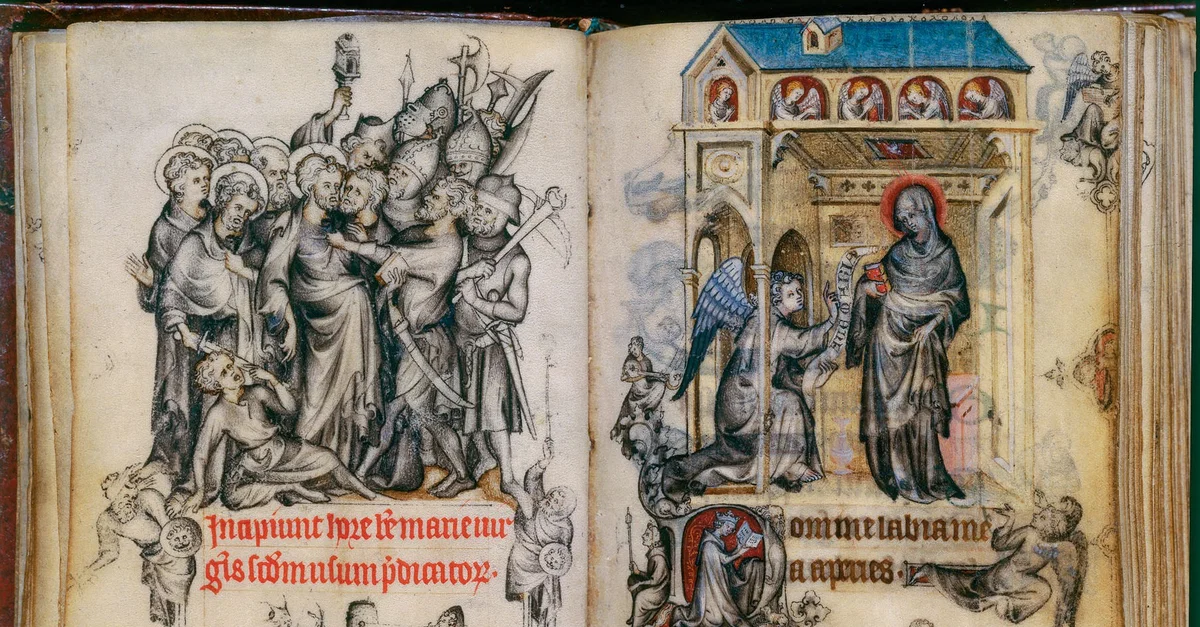 Incipiunt hore bte marie uir
gis scdm usum pdicatorꝝ.
Domine labia me
a aperies.